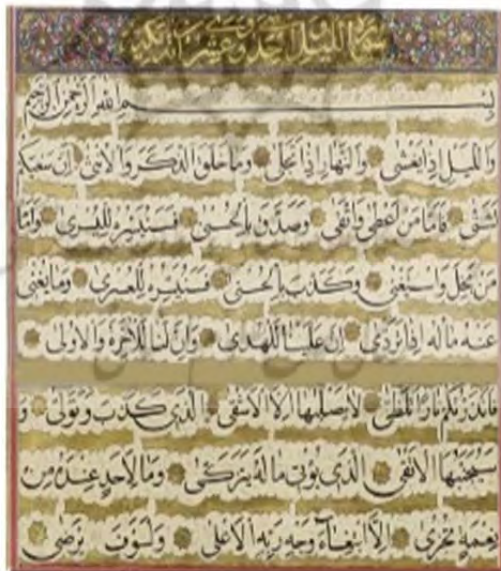 سورة الليل احدى وعشرون آية مكية
بسم الله الرحمن الرحيم
والليل إذا يغشى والنهار إذا تجلى وما خلق الذكر والأنثى إن سعيكم
لشتى فأما من أعطى واتقى وصدق بالحسنى فسنيسره لليسرى وأما
من بخل واستغنى وكذب بالحسنى فسنيسره للعسرى وما يغني
عنه ماله إذا تردى إن علينا للهدى وإن لنا للآخرة والأولى
فأنذرتكم نارا تلظى لا يصلاها إلا الأشقى الذي كذب وتولى و
سيجنبها الأتقى الذي يؤتي ماله يتزكى وما لأحد عنده من
نعمة تجزى إلا ابتغاء وجه ربه الأعلى ولسوف يرضى